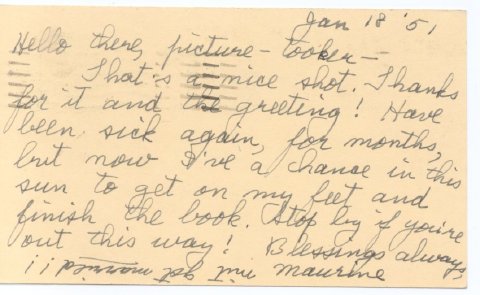 Jan 18 '51
Hello there, picture-tooker-
That's a nice shot. Thanks
for it and the greeting! Have
been sick again, for months,
but now I've a chance in this
sun to get on my feet and
finish the book. Stop by if you're
out this way! Blessings always,
Maurine